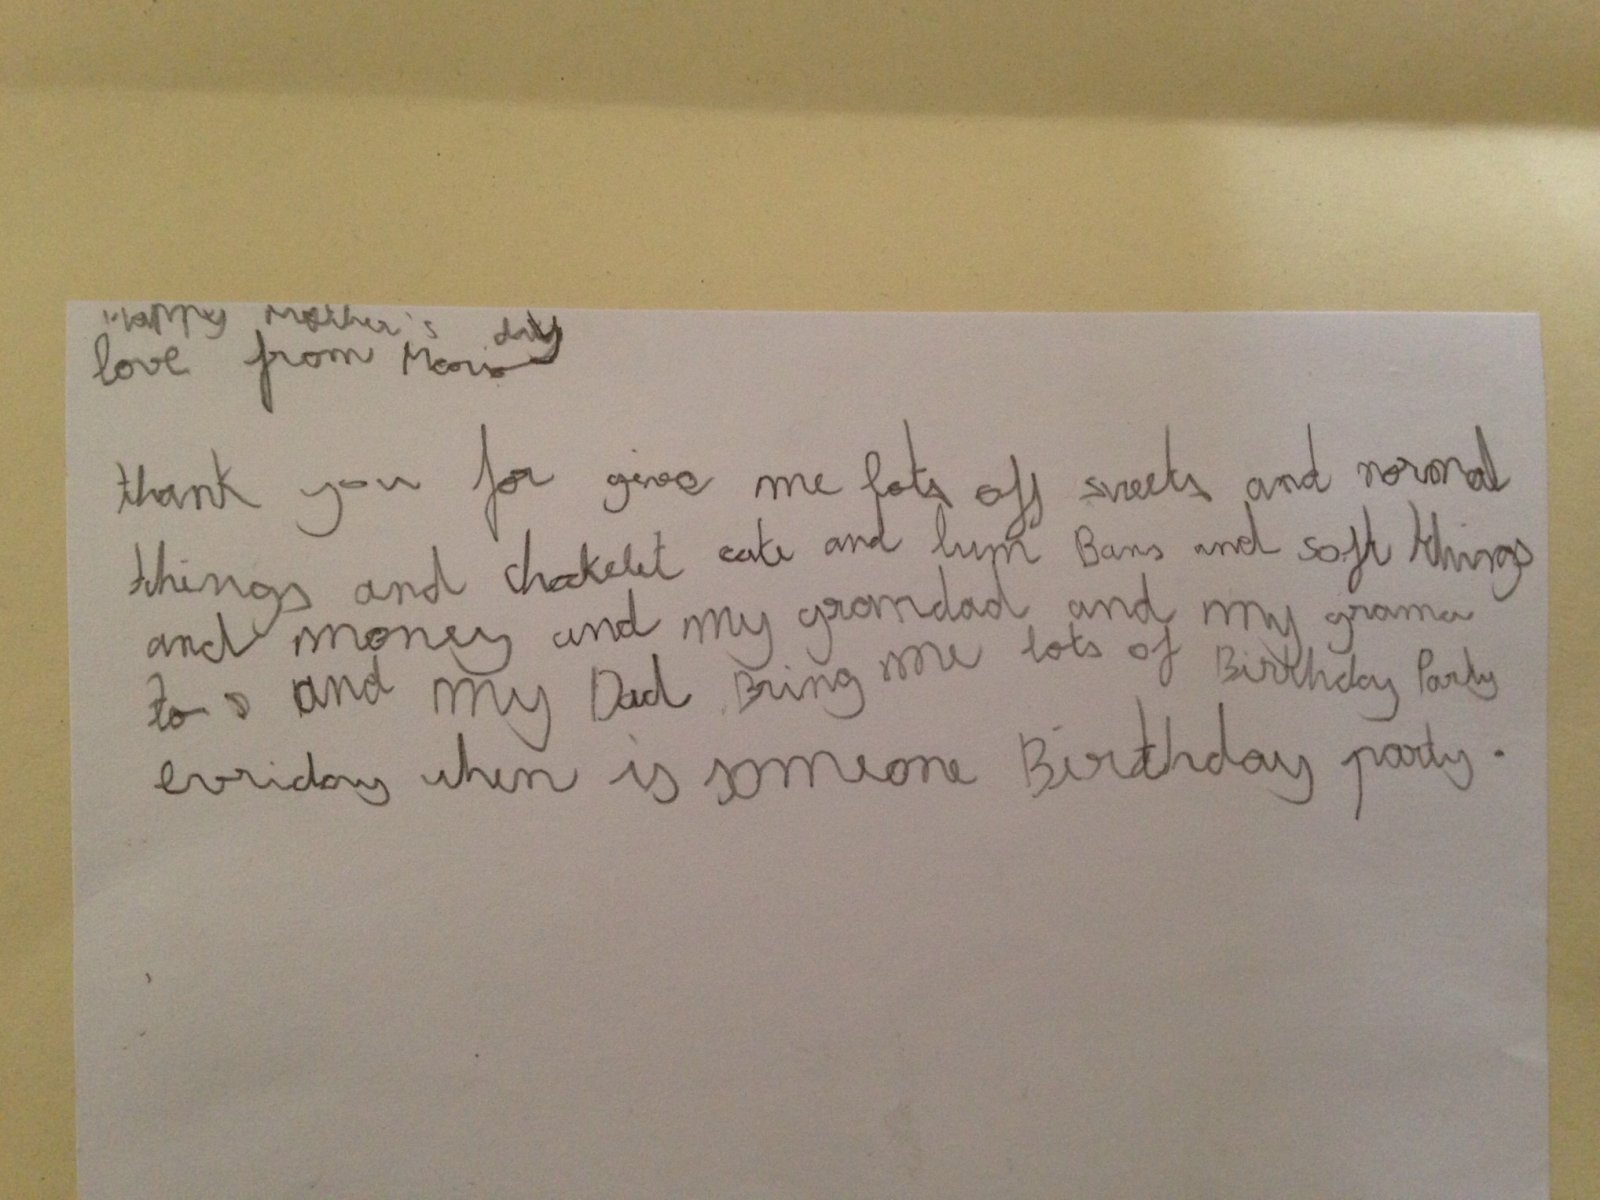 Happy Mother's day
love from Mario
thank you for give me lots off sweets and normal
things and chockelet cake and lum Bars and soft things
and money and my grandad and my grama
to and my Dad Bring me lots of Birthday Party
evriday when is someone Birthday party.